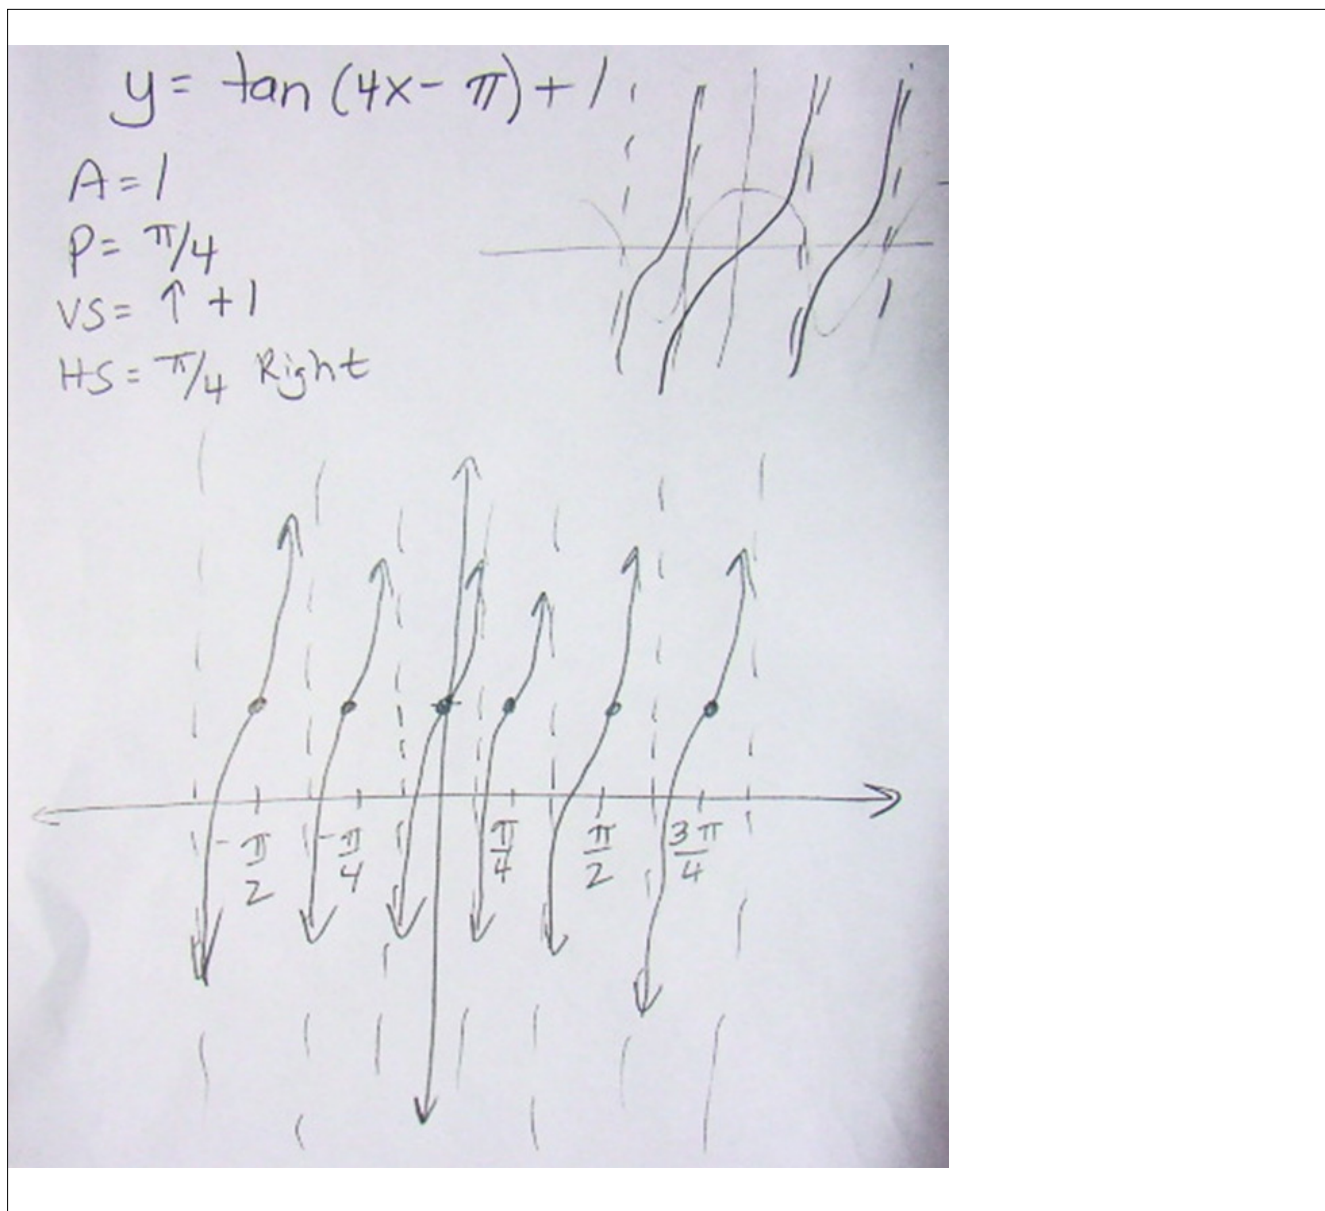 y = tan (4x - π) + 1
A = 1
P = π/4
VS = ↑ +1
HS = π/4 Right
-π/2 -π/4 π/4 π/2 3π/4